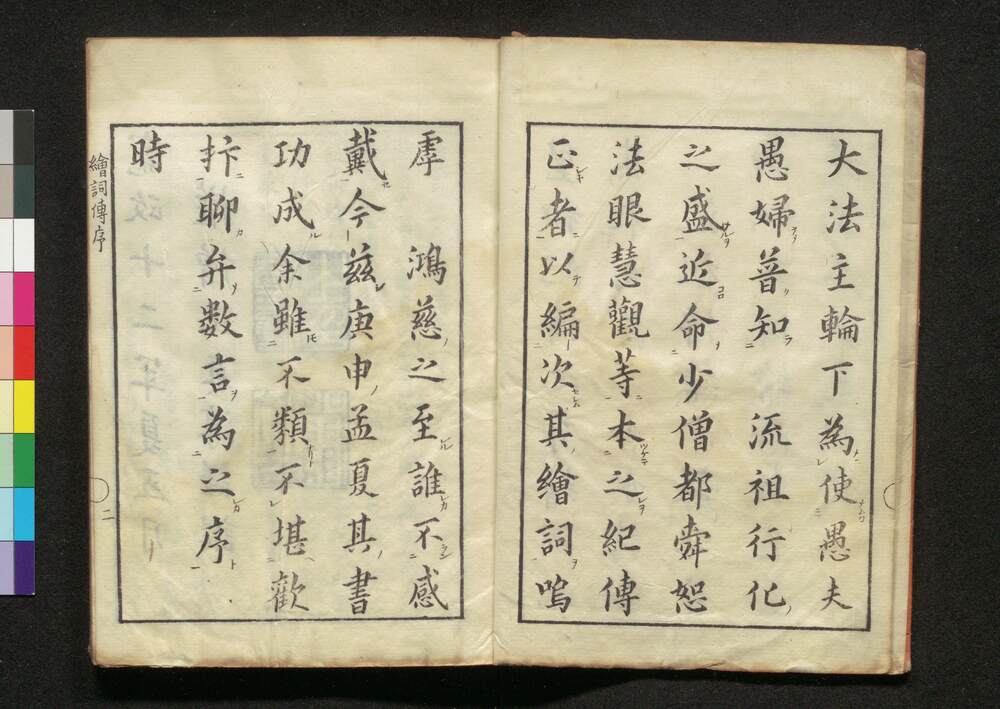 大法主輪下為使愚夫
愚婦普知　流祖行化
之盛近命少僧都舜恕
法眼慧觀等本之紀傳
正者以編次其繪詞嗚
虖　鴻慈之至誰不感
戴今茲庚申孟夏其書
功成余雖不類不堪歡
抃聊弁數言為之序
時
繪詞傳序
二